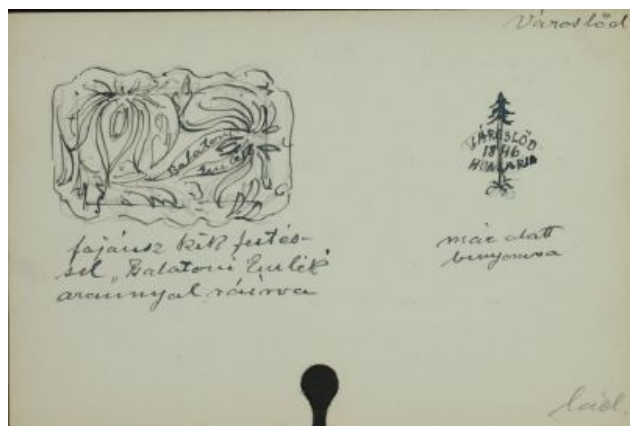 Városlőd
Balatoni
Emlék
VÁROSLŐD
1846
HUNGARIA
fajánsz kék festés-
sel „Balatoni Emlék”
arannyal ráírva
máz alatt
benyomva